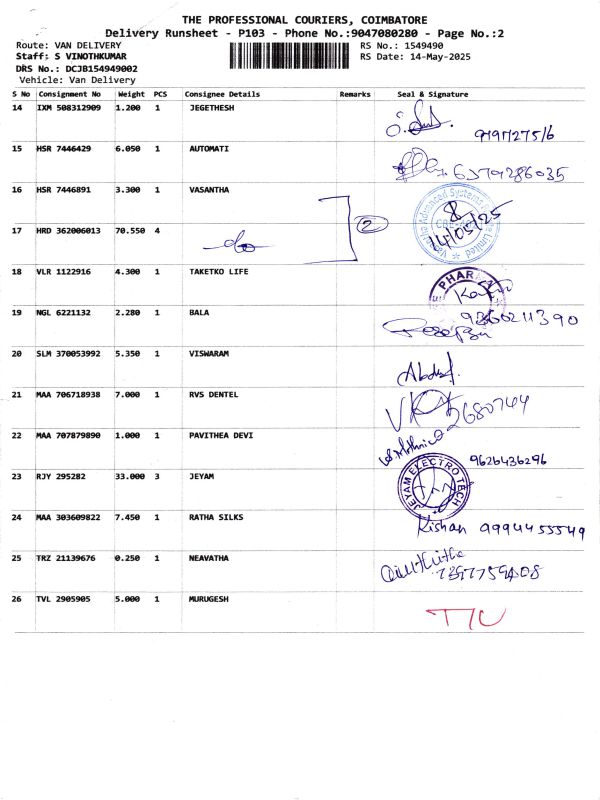 THE PROFESSIONAL COURIERS, COIMBATORE
Delivery Runsheet - P103 - Phone No.:9047080280 - Page No.:2
Route: VAN DELIVERY RS No.: 1549490
Staff: S VINOTHKUMAR RS Date: 14-May-2025
DRS No.: DCJB154949002
Vehicle: Van Delivery
S No Consignment No Weight PCS Consignee Details Remarks Seal & Signature
14 IXM 508312909 1.200 1 JEGETHESH
15 HSR 7446429 6.050 1 AUTOMATI
6379286035
16 HSR 7446891 3.300 1 VASANTHA
2
14/05/25
17 HRD 362006013 70.550 4
do
18 VLR 1122916 4.300 1 TAKETKO LIFE
PHAR
19 NGL 6221132 2.280 1 BALA
9360211390
20 SLM 370053992 5.350 1 VISWARAM
21 MAA 706718938 7.000 1 RVS DENTEL
22 MAA 707879890 1.000 1 PAVITHEA DEVI
9626436296
23 RJY 295282 33.000 3 JEYAM
JEYAM ELECTRO TECH
24 MAA 303609822 7.450 1 RATHA SILKS
Kishan 9994455549
25 TRZ 21139676 0.250 1 NEAVATHA
26 TVL 2905905 5.000 1 MURUGESH